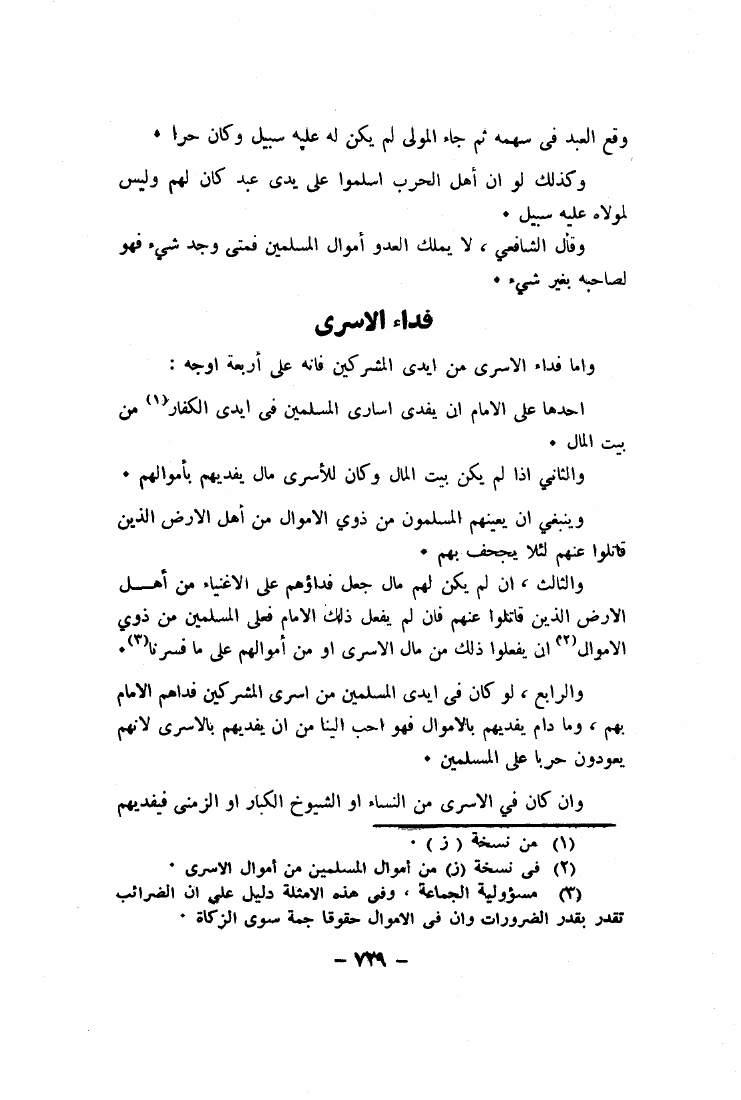 وقع العبد فى سهمه ثم جاء المولى لم يكن له عليه سبيل وكان حرا ٠
وكذلك لو ان أهل الحرب اسلموا على يدى عبد كان لهم وليس
لمولاه عليه سبيل ٠
وقال الشافعي ، لا يملك العدو أموال المسلمين فمتى وجد شيء فهو
لصاحبه بغير شيء ٠
فداء الاسرى
واما فداء الاسرى من ايدى المشركين فانه على أربعة اوجه :
احدها على الامام ان يفدى اسارى المسلمين فى ايدى الكفار(١) من
بيت المال ٠
والثاني اذا لم يكن بيت المال وكان للأسرى مال يفديهم بأموالهم ٠
وينبغي ان يعينهم المسلمون من ذوي الاموال من أهل الارض الذين
قاتلوا عنهم لئلا يجحف بهم ٠
والثالث ، ان لم يكن لهم مال جعل فداؤهم على الاغنياء من أهــل
الارض الذين قاتلوا عنهم فان لم يفعل ذلك الامام فعلى المسلمين من ذوي
الاموال(٢) ان يفعلوا ذلك من مال الاسرى او من أموالهم على ما فسرنا(٣)٠
والرابع ، لو كان فى ايدى المسلمين من اسرى المشركين فداهم الامام
بهم ، وما دام يفديهم بالاموال فهو احب الينا من ان يفديهم بالاسرى لانهم
يعودون حربا على المسلمين ٠
وان كان في الاسرى من النساء او الشيوخ الكبار او الزمنى فيفديهم
(١) من نسخة ( ز ) ٠
(٢) فى نسخة (ز) من أموال المسلمين من أموال الاسرى ٠
(٣) مسؤولية الجماعة ، وفى هذه الامثلة دليل على ان الضرائب
تقدر بقدر الضرورات وان فى الاموال حقوقا جمة سوى الزكاة ٠
– ٧٣٩ –